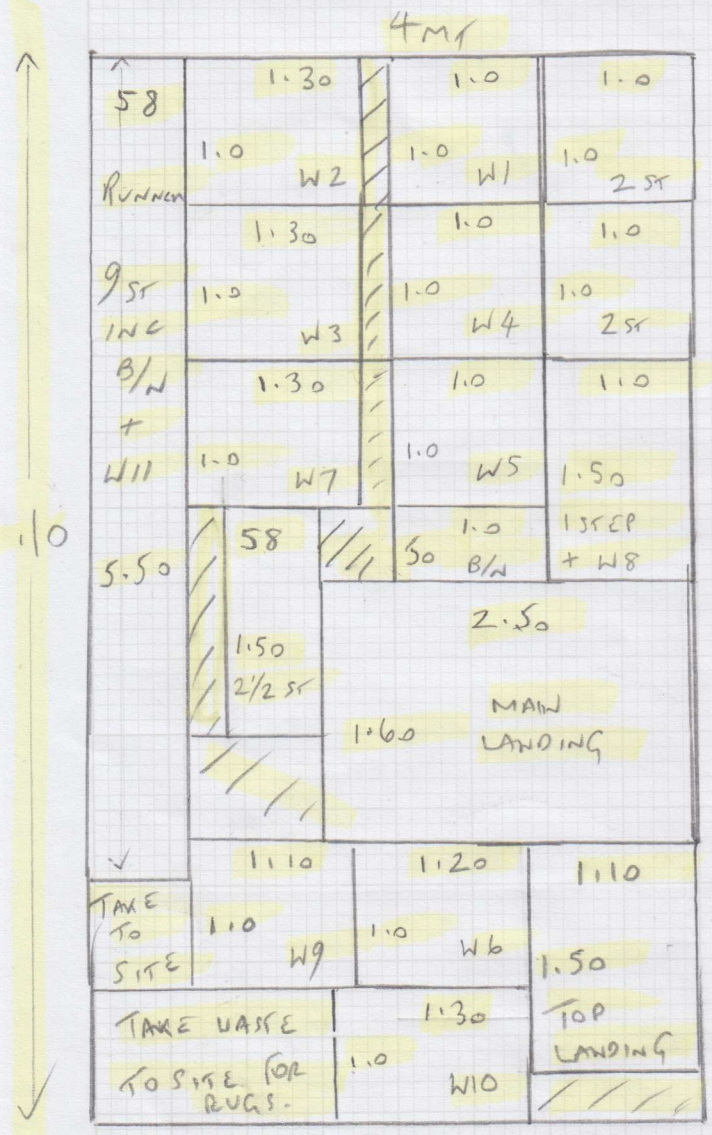 4 MT
58
RUNNER
9 ST
INC
B/N
+
W11
5.50
1.30
1.0
W2
1.0
1.0
W1
1.0
1.0
2 ST
1.30
1.0
W3
1.0
1.0
W4
1.0
1.0
2 ST
1.30
1.0
W7
1.0
1.0
W5
1.0
1.50
1 STEP
+ W8
1.0
50
B/N
58
1.50
2 1/2 ST
2.50
1.60
MAIN
LANDING
TAKE
TO
SITE
1.10
1.0
W9
1.20
1.0
W6
1.10
1.50
TOP
LANDING
TAKE WASTE
TO SITE FOR
RUGS.
1.30
1.0
W10